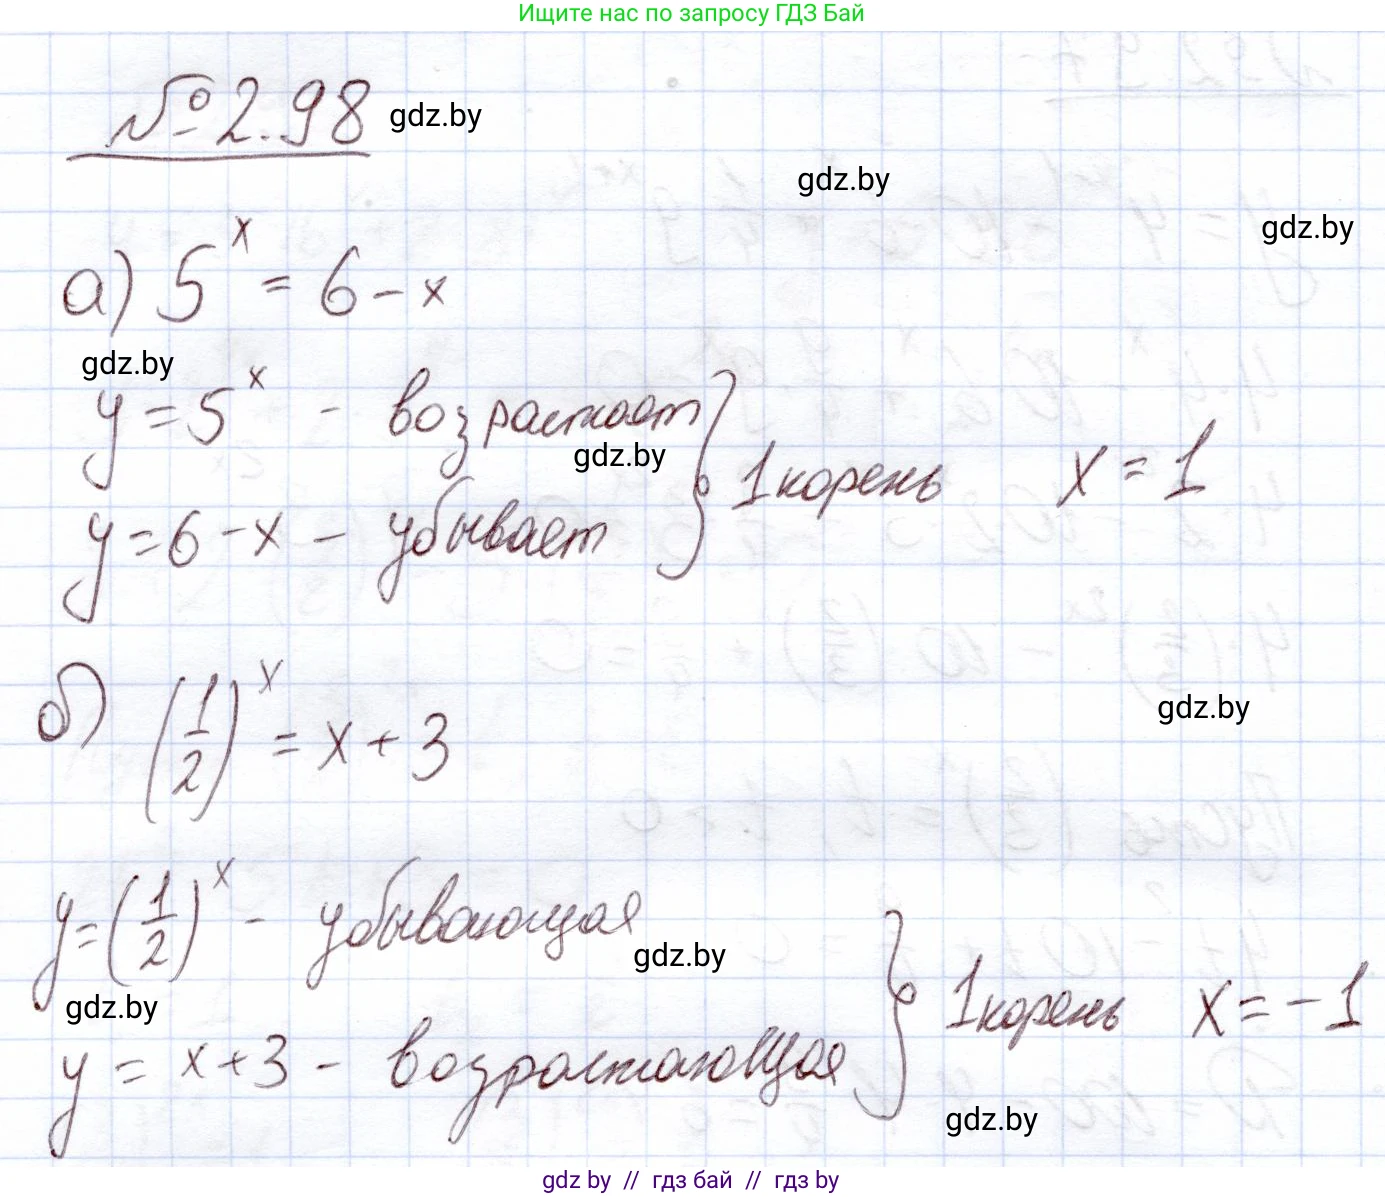 Ищите нас по запросу ГДЗ Бай
№ 2.98 gdz.by
gdz.by
gdz.by
а) 5^x = 6 - x
gdz.by
y = 5^x - возрастает
gdz.by
y = 6 - x - убывает
} 1 корень x = 1
б) (1/2)^x = x + 3
gdz.by
y = (1/2)^x - убывающая
gdz.by
gdz.by
y = x + 3 - возрастающая
} 1 корень x = -1
gdz.by
gdz by // гдз бай // гдз by